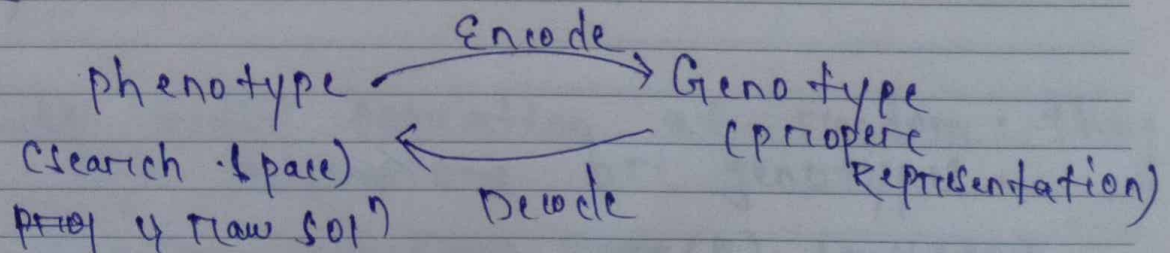 Encode
phenotype Genotype
(search space) (propere
Representation)
raw solⁿ Decode